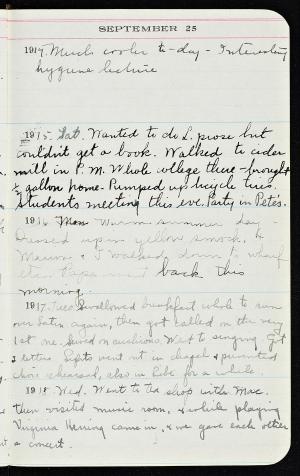 SEPTEMBER 25
1914. Much cooler to-day - Interesting
hygiene lecture
1915. Sat. Wanted to do L. prose but
couldn't get a book. Walked to cider
mill in P.M. Whole village there - brought
½ gallon home. Pumped up bicycle tires.
Students meeting this eve. Party in Pete's.
1916 Mon Warm summer day
Dressed up in yellow smock, &
I walked down to wharf
back this
morning.
1917. Tues. Swallowed breakfast whole to run
over Latin again, then got called on the very
1st one. Went to singing, got
a letter. went out in chapel &
choir rehearsed, also in Libe for a while.
1918 Wed. Went to tea shop with Mac.
then visited music room, & while playing
Virginia Herring came in, & we gave each other
a concert.